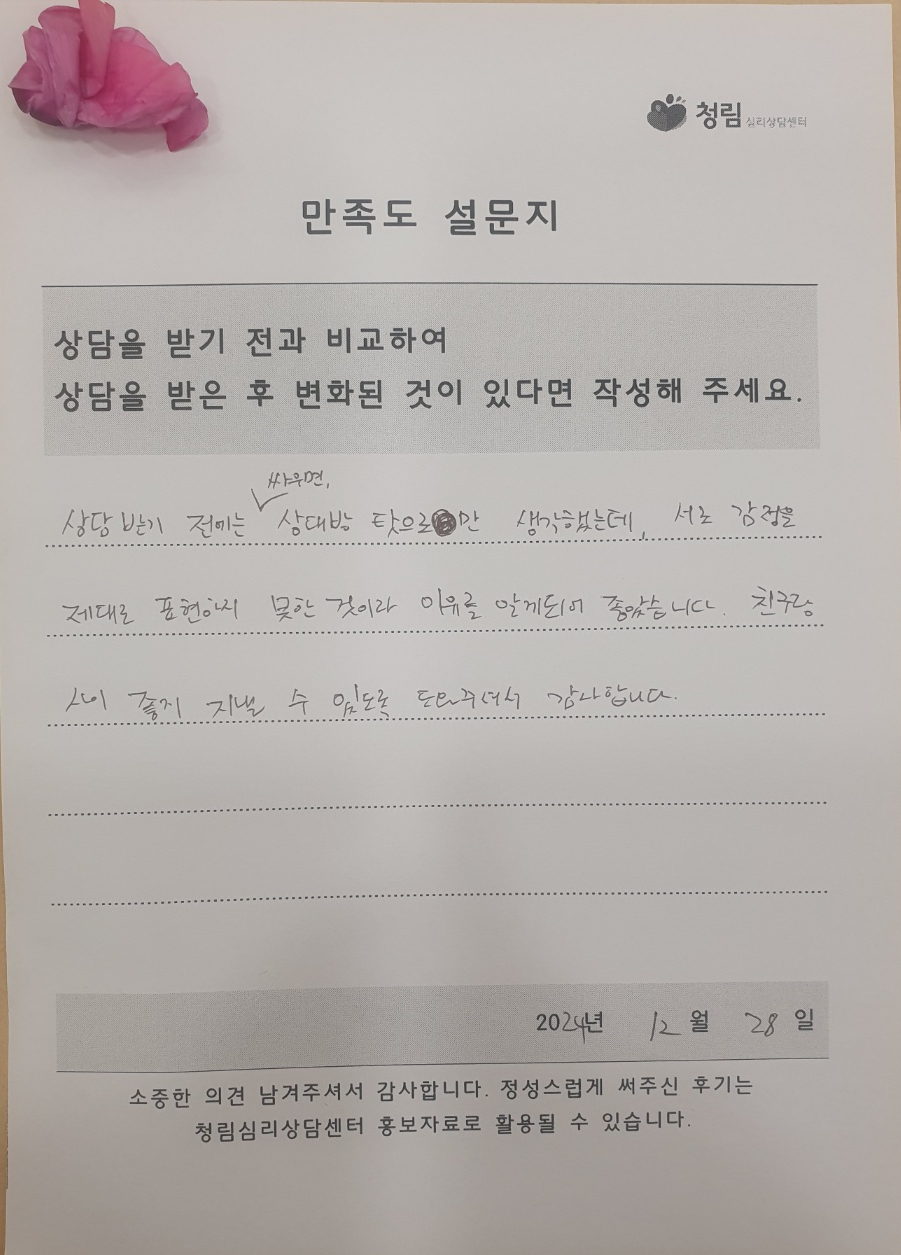 청림 심리상담센터
만족도 설문지
상담을 받기 전과 비교하여
상담을 받은 후 변화된 것이 있다면 작성해 주세요.
싸우면,
상담 받기 전에는 상대방 탓으로만 생각했는데, 서로 감정을
제대로 표현하지 못한 것이라 이유를 알게되어 좋았습니다. 친구랑
사이 좋게 지낼 수 있도록 도와주셔서 감사합니다.
2024년 12월 28일
소중한 의견 남겨주셔서 감사합니다. 정성스럽게 써주신 후기는
청림심리상담센터 홍보자료로 활용될 수 있습니다.